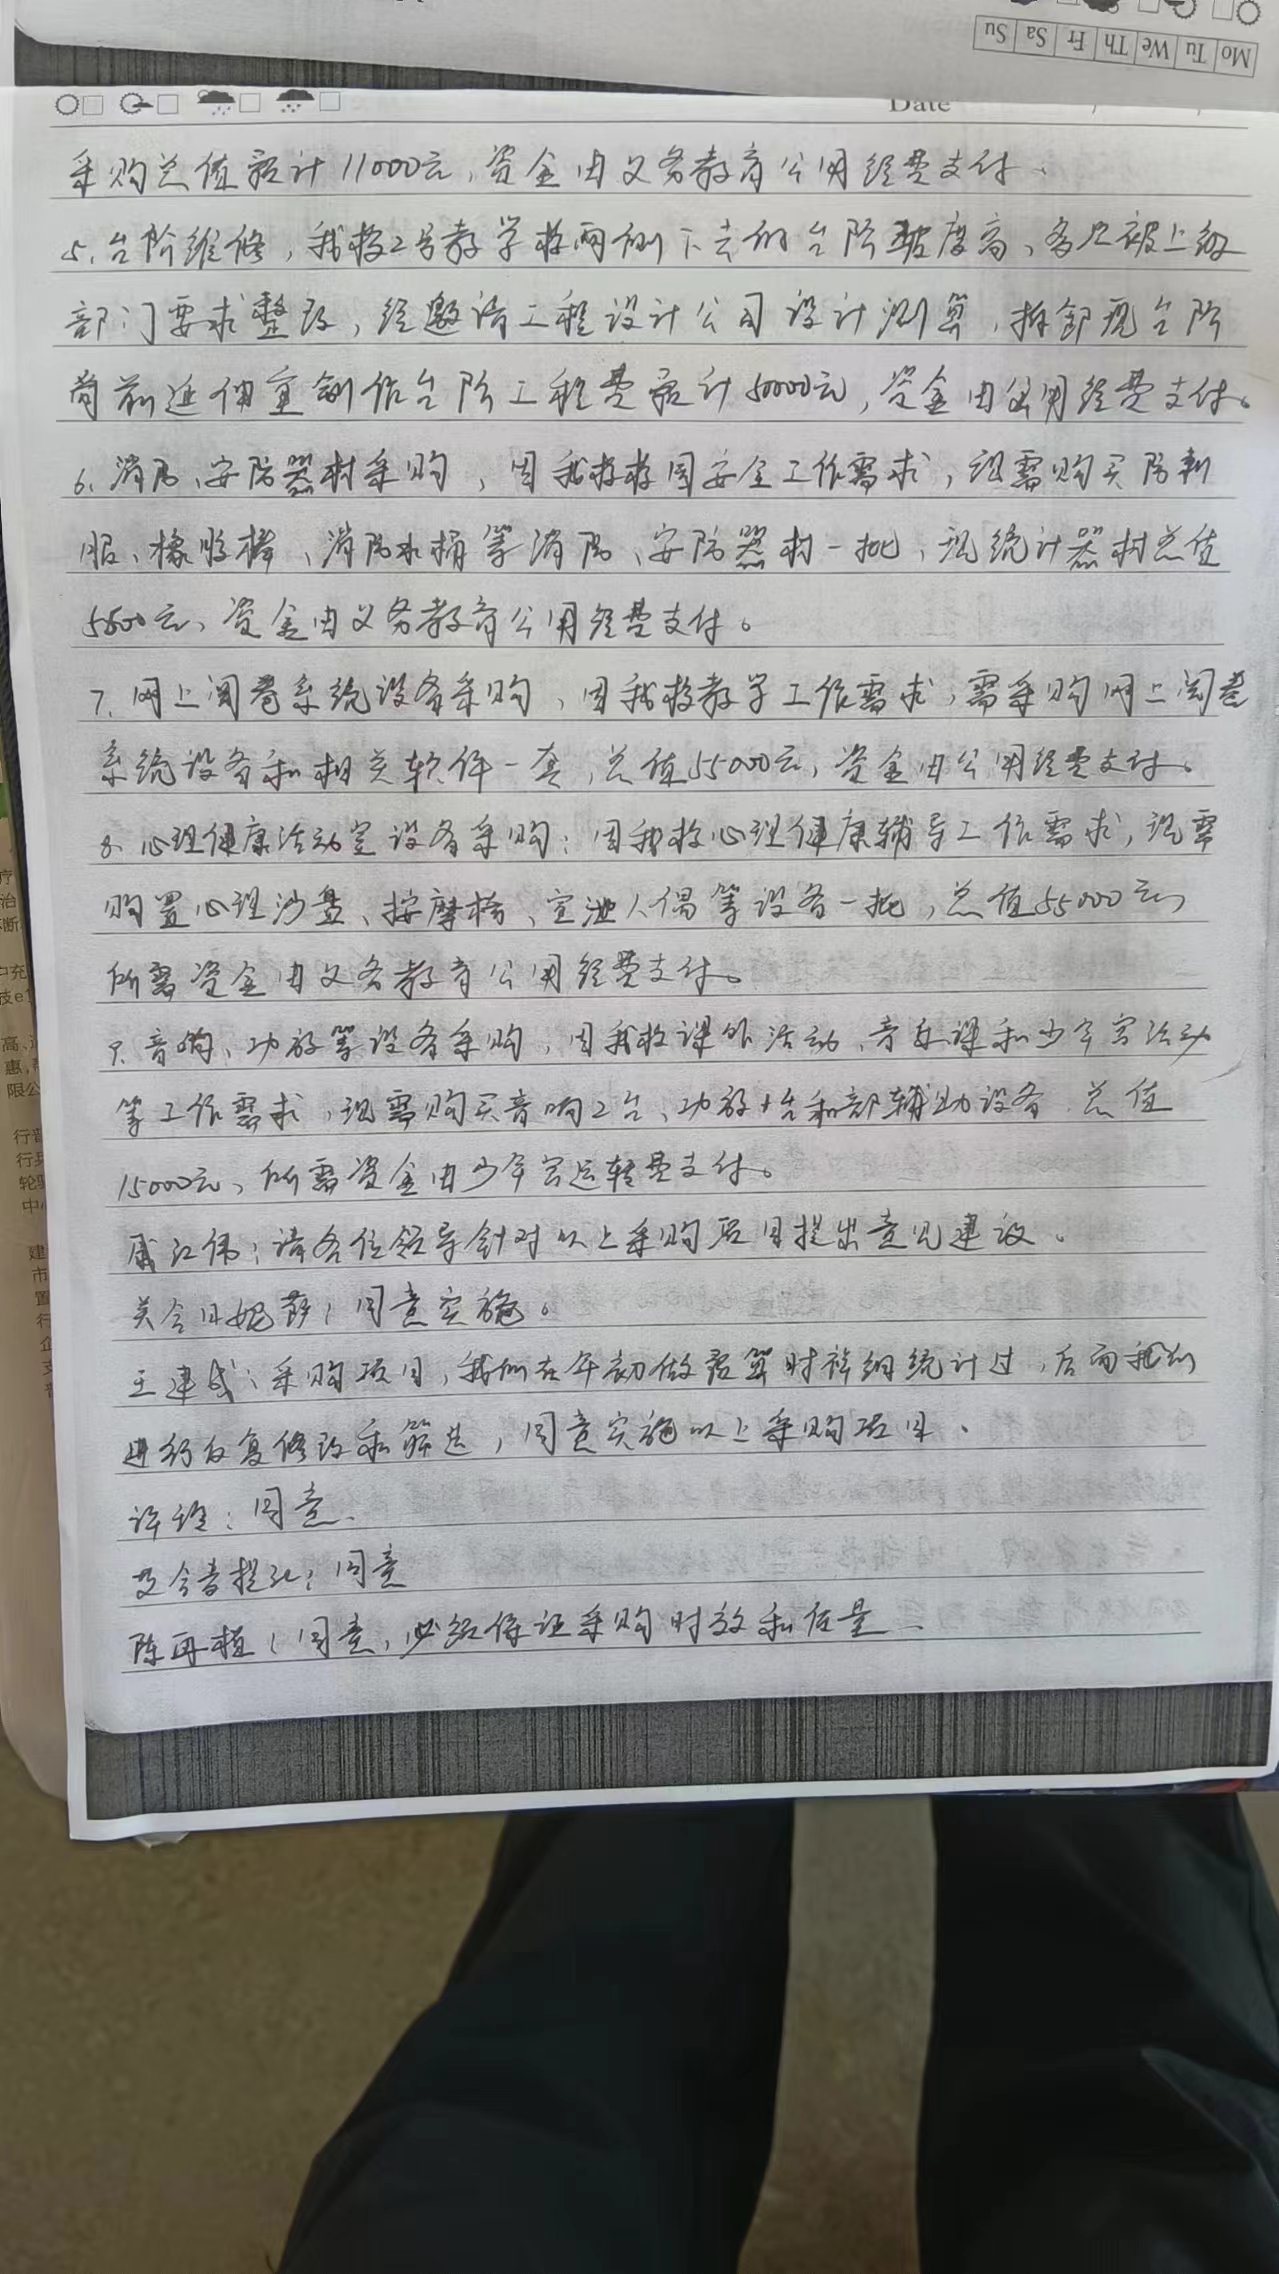 Mo Tu We Th Fr Sa Su
Date
采购总值预计11000元,资金由义务教育公用经费支付。
5.台阶维修,我校2号教学楼两侧下去的台阶坡度高、多次被上级
部门要求整改,经邀请工程设计公司设计测算,拆卸现台阶
向前延伸重制作台阶工程费预计50000元,资金由公用经费支付。
6.消防、安防器材采购,因我校校园安全工作需求,现需购买防刺
服、橡胶棒、消防水桶等消防、安防器材一批,现统计器材总值
5800元,资金由义务教育公用经费支付。
7.网上阅卷系统设备采购,因我校教学工作需求,需采购网上阅卷
系统设备和相关软件一套,总值55000元,资金由公用经费支付。
8.心理健康活动室设备采购:因我校心理健康辅导工作需求,现需
购置心理沙盘、按摩椅、宣泄人偶等设备一批,总值55000元,
所需资金由义务教育公用经费支付。
9.音响、功放等设备采购,因我校课外活动、音乐课和少年宫活动
等工作需求,现需购买音响2台、功放1台和部辅助设备.总值
15000元,所需资金由少年宫运转费支付。
江伟:请各位领导针对以上采购项目提出意见建议。
:同意实施。
王建成:采购项目,我们在年初做预算时详细统计过,后面我们
进行反复修改和筛选,同意实施以上采购项目。
许:同意.
:同意
陈再植:同意,必须保证采购时效和质量.